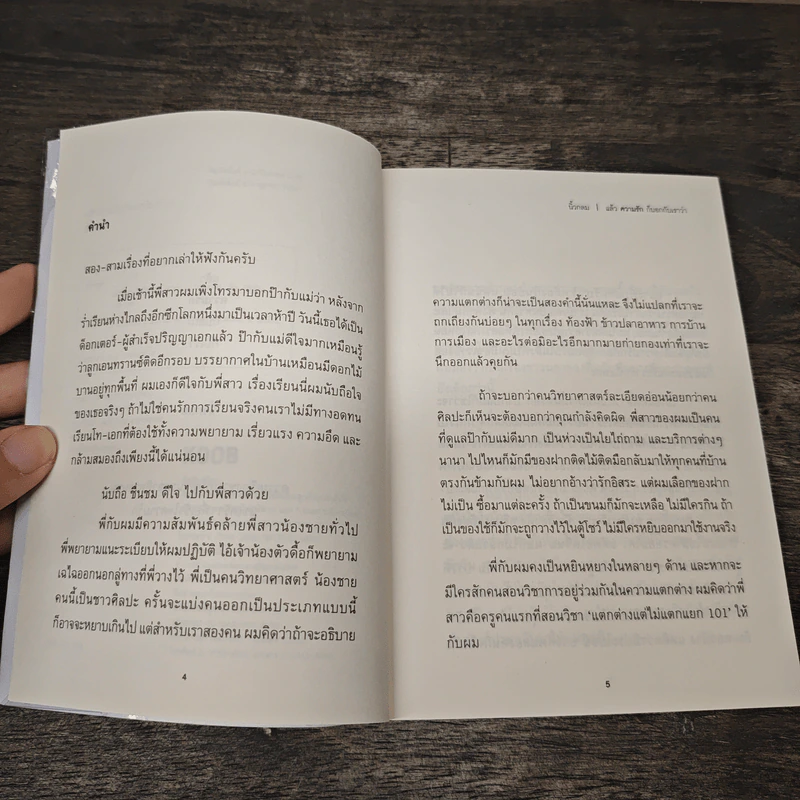 คำนำ
สอง-สามเรื่องที่อยากเล่าให้ฟังกันครับ
เมื่อเช้านี้พี่สาวผมเพิ่งโทรมาบอกป๊ากับแม่ว่า หลังจาก
ร่ำเรียนห่างไกลถึงอีกซีกโลกหนึ่งมาเป็นเวลาห้าปี วันนี้เธอได้เป็น
ด็อกเตอร์-ผู้สำเร็จปริญญาเอกแล้ว ป๊ากับแม่ดีใจมากเหมือนรู้
ว่าลูกเอนทรานซ์ติดอีกรอบ บรรยากาศในบ้านเหมือนมีดอกไม้
บานอยู่ทุกพื้นที่ ผมเองก็ดีใจกับพี่สาว เรื่องเรียนนี่ผมนับถือใจ
ของเธอจริงๆ ถ้าไม่ใช่คนรักการเรียนจริงคนเราไม่มีทางอดทน
เรียนโท-เอกที่ต้องใช้ทั้งความพยายาม เรี่ยวแรง ความอึด และ
กล้ามสมองถึงเพียงนี้ได้แน่นอน
นับถือ ชื่นชม ดีใจ ไปกับพี่สาวด้วย
พี่กับผมมีความสัมพันธ์คล้ายพี่สาวน้องชายทั่วไป
พี่พยายามแนะระเบียบให้ผมปฏิบัติ ไอ้เจ้าน้องตัวดื้อก็พยายาม
เฉไฉออกนอกลู่ทางที่พี่วางไว้ พี่เป็นคนวิทยาศาสตร์ น้องชาย
คนนี้เป็นชาวศิลปะ ครั้นจะแบ่งคนออกเป็นประเภทแบบนี้
ก็อาจจะหยาบเกินไป แต่สำหรับเราสองคน ผมคิดว่าถ้าจะอธิบาย
4
นิ้วกลม | แล้ว ความรัก ก็บอกกับเราว่า
ความแตกต่างก็น่าจะเป็นสองคำนี้นั่นแหละ จึงไม่แปลกที่เราจะ
ถกเถียงกันบ่อยๆ ในทุกเรื่อง ท้องฟ้า ข้าวปลาอาหาร การบ้าน
การเมือง และอะไรต่อมิอะไรอีกมากมายก่ายกองเท่าที่เราจะ
นึกออกแล้วคุยกัน
ถ้าจะบอกว่าคนวิทยาศาสตร์ละเอียดอ่อนน้อยกว่าคน
ศิลปะก็เห็นจะต้องบอกว่าคุณกำลังคิดผิด พี่สาวของผมเป็นคน
ที่ดูแลป๊ากับแม่ดีมาก เป็นห่วงเป็นใยไถ่ถาม และบริการต่างๆ
นานา ไปไหนก็มักมีของฝากติดไม้ติดมือกลับมาให้ทุกคนที่บ้าน
ตรงกันข้ามกับผม ไม่อยากอ้างว่ารักอิสระ แต่ผมเลือกของฝาก
ไม่เป็น ซื้อมาแต่ละครั้ง ถ้าเป็นขนมก็มักจะเหลือ ไม่มีใครกิน ถ้า
เป็นของใช้ก็มักจะถูกวางไว้ในตู้โชว์ ไม่มีใครหยิบออกมาใช้งานจริง
พี่กับผมคงเป็นหยินหยางในหลายๆ ด้าน และหากจะ
มีใครสักคนสอนวิชาการอยู่ร่วมกันในความแตกต่าง ผมคิดว่าพี่
สาวคือครูคนแรกที่สอนวิชา ‘แตกต่างแต่ไม่แตกแยก 101’ ให้
กับผม
5